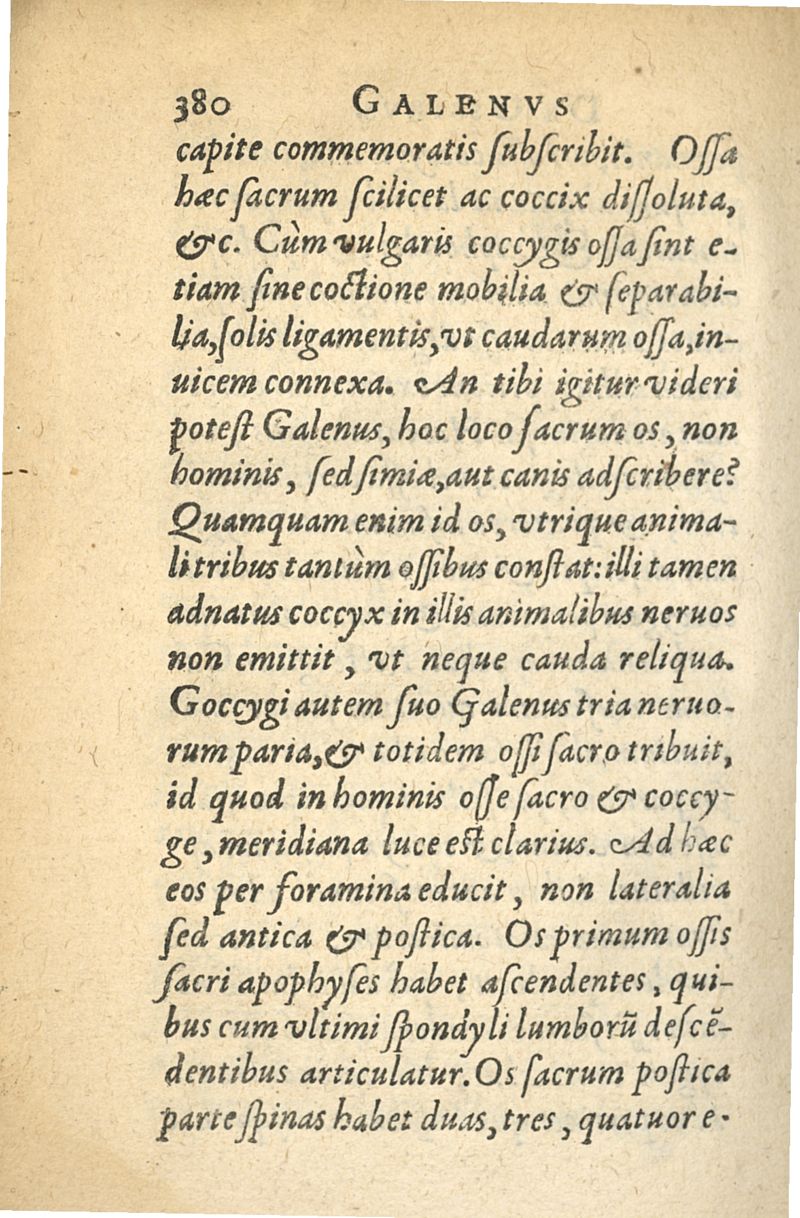 380 GALENVS
capite commemoratis ſubſcribit. Oſſa
hæc ſacrum ſcilicet ac coccix diſſoluta,
&c. Cùm vulgaris coccygis oſſa ſint e-
tiam ſine coctione mobilia & ſeparabi-
lia, ſolis ligamentis, vt caudarum oſſa, in-
uicem connexa. An tibi igitur videri
poteſt Galenus, hoc loco ſacrum os, non
hominis, ſed ſimiæ, aut canis adſcribere?
Quamquam enim id os, vtrique anima-
li tribus tantùm oſſibus conſtat: illi tamen
adnatus coccyx in illis animalibus neruos
non emittit, vt neque cauda reliqua.
Goccygi autem ſuo Galenus tria neruo-
rum paria, & totidem oſſi ſacro tribuit,
id quod in hominis oſſe ſacro & coccy-
ge, meridiana luce eſt clarius. Ad hæc
eos per foramina educit, non lateralia
ſed antica & poſtica. Os primum oſſis
ſacri apophyſes habet aſcendentes, qui-
bus cum vltimi ſpondyli lumborũ deſcẽ-
dentibus articulatur. Os ſacrum poſtica
parte ſpinas habet duas, tres, quatuor e-